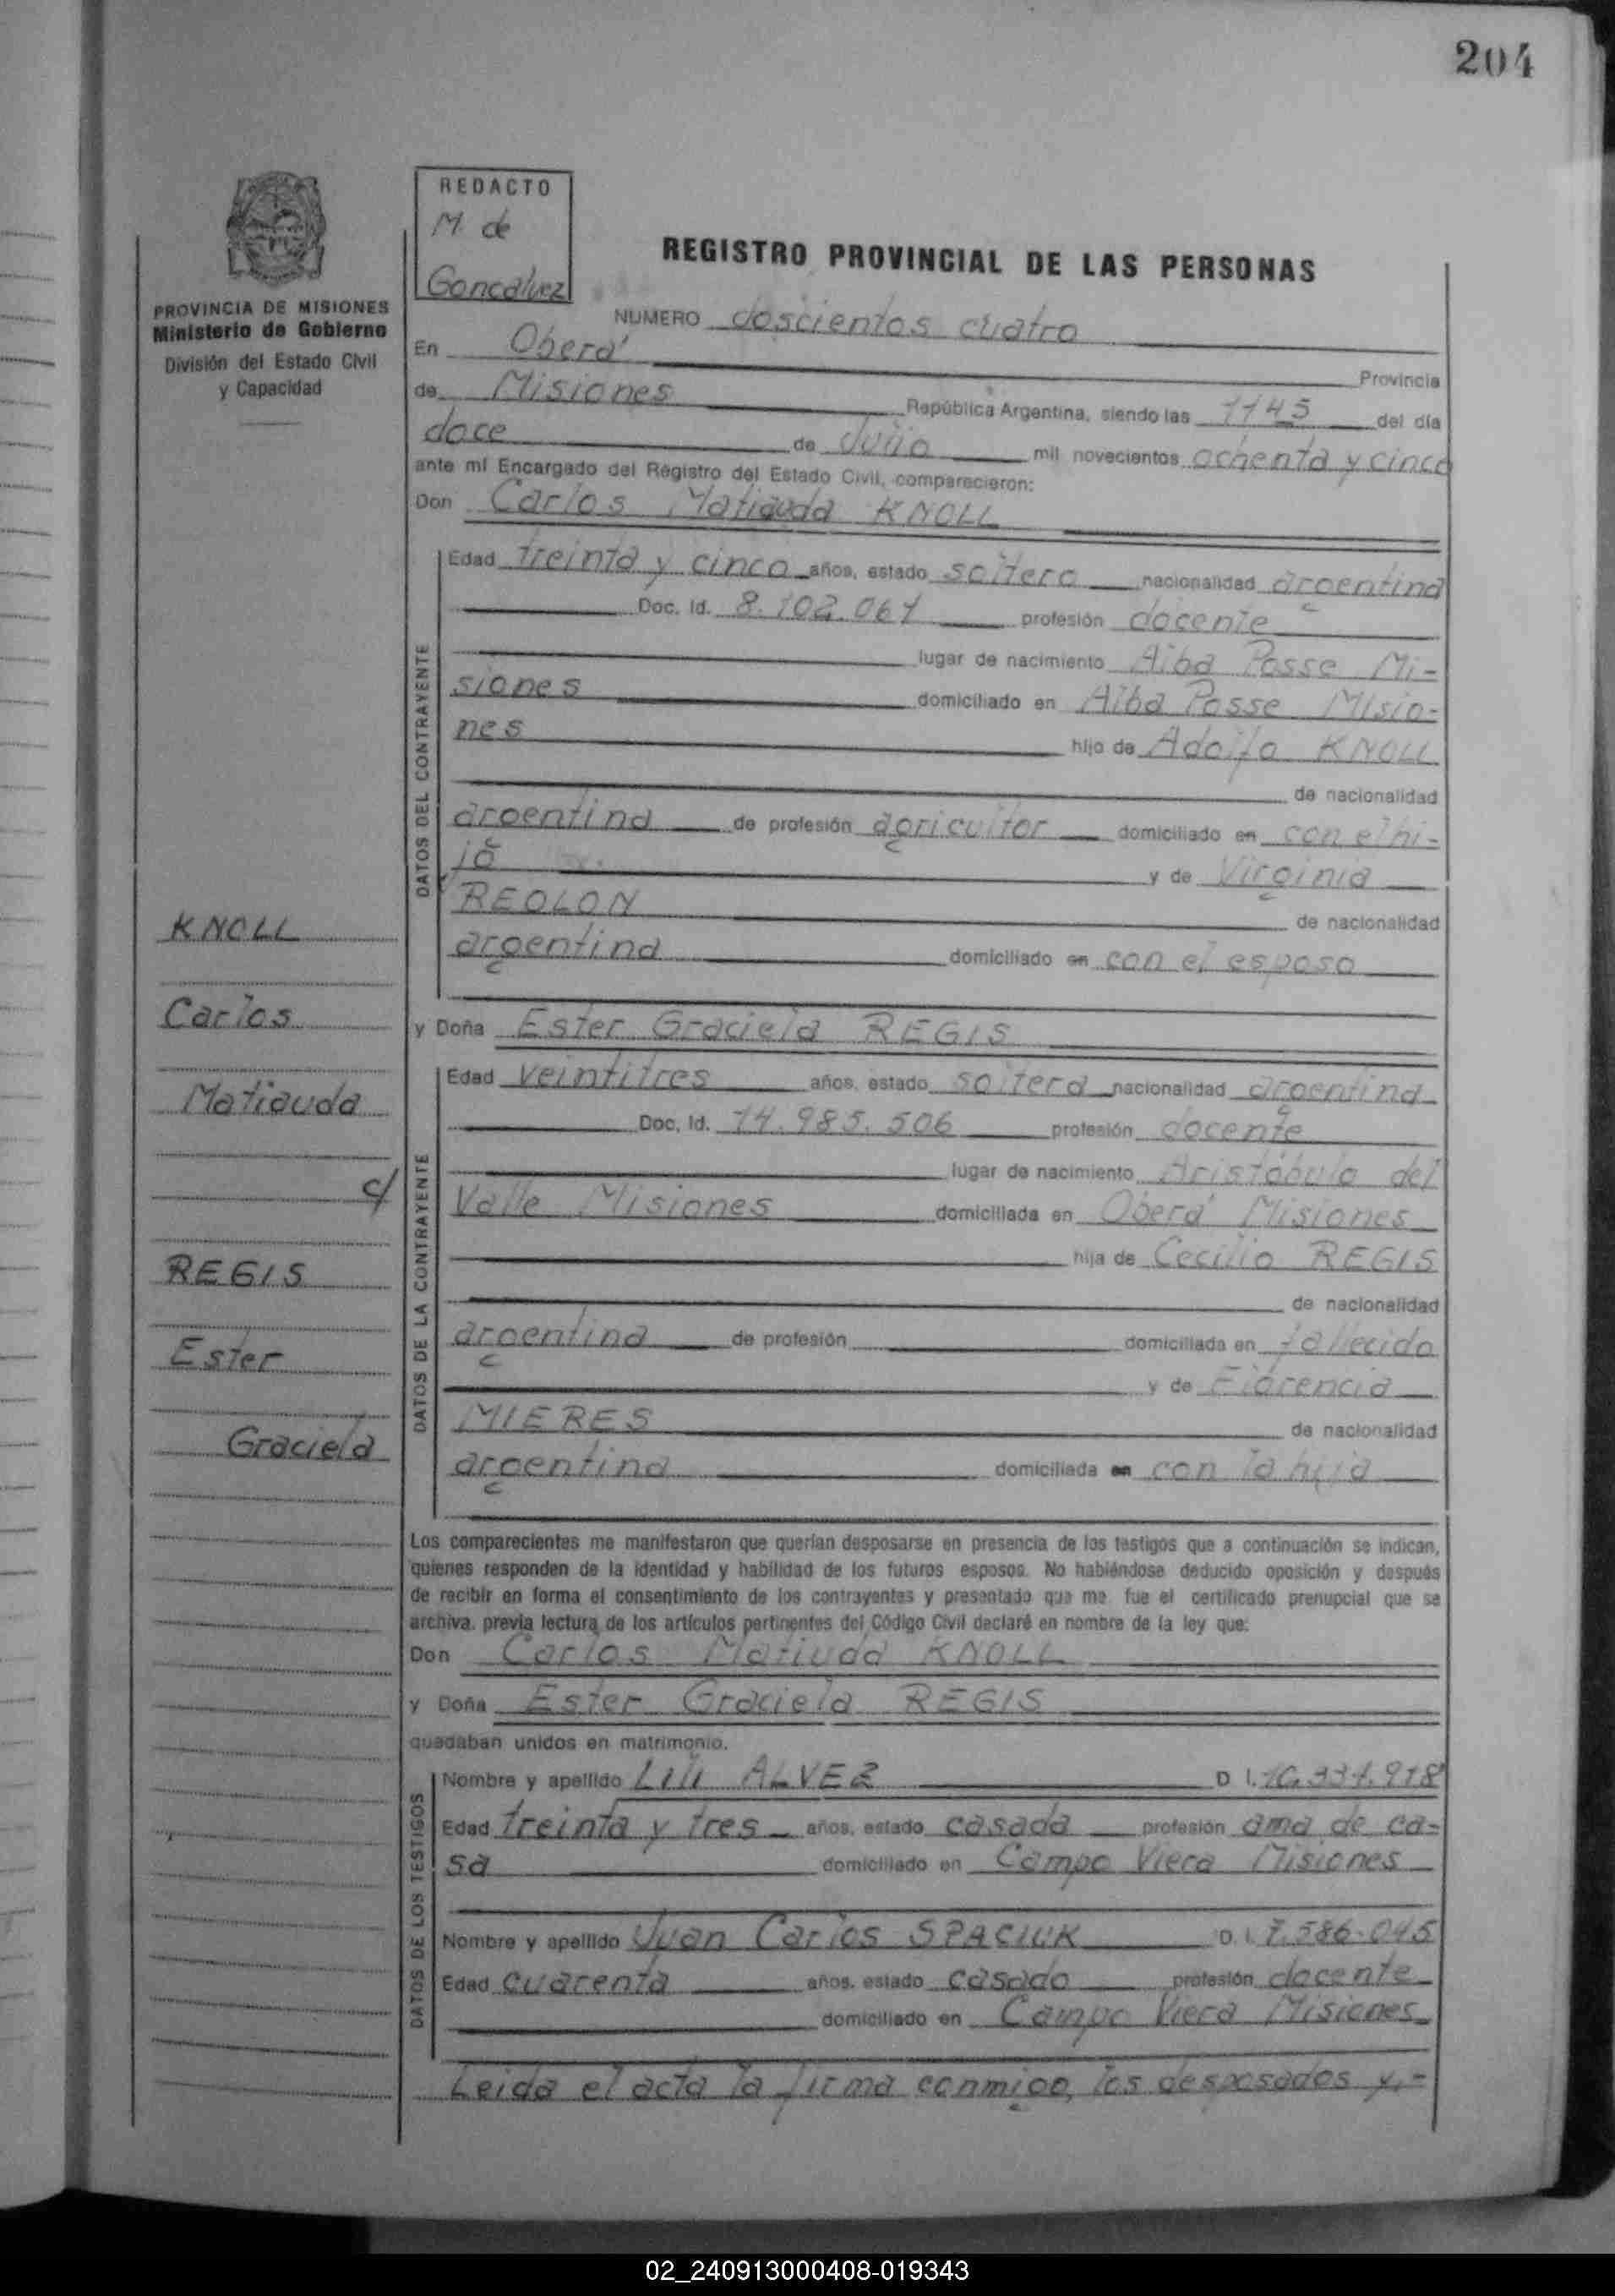 204
REDACTO
M. de
Goncalvez
PROVINCIA DE MISIONES
Ministerio de Gobierno
División del Estado Civil
y Capacidad
REGISTRO PROVINCIAL DE LAS PERSONAS
NUMERO doscientos cuatro
En Oberá Provincia
de Misiones República Argentina, siendo las 1145 del día
doce de Julio mil novecientos ochenta y cinco
ante mí Encargado del Registro del Estado Civil, comparecieron:
Don Carlos Matiauda KNOLL
DATOS DEL CONTRAYENTE
Edad treinta y cinco años, estado soltero nacionalidad argentina
Doc. Id. 8.102.061 profesión docente
lugar de nacimiento Alba Posse Mi-
siones domiciliado en Alba Posse Misio-
nes hijo de Adolfo KNOLL
de nacionalidad
argentina de profesión agricultor domiciliado en con el hi-
jo y de Virginia
REOLON de nacionalidad
argentina domiciliado en con el esposo
y Doña Ester Graciela REGIS
DATOS DE LA CONTRAYENTE
Edad veintitres años, estado soltera nacionalidad argentina
Doc. Id. 14.985.506 profesión docente
lugar de nacimiento Aristóbulo del
Valle Misiones domiciliada en Oberá Misiones
hija de Cecilio REGIS
de nacionalidad
argentina de profesión domiciliada en fallecido
y de Florencia
MIERES de nacionalidad
argentina domiciliada en con la hija
KNOLL
Carlos
Matiauda
c/
REGIS
Ester
Graciela
Los comparecientes me manifestaron que querían desposarse en presencia de los testigos que a continuación se indican,
quienes responden de la identidad y habilidad de los futuros esposos. No habiéndose deducido oposición y después
de recibir en forma el consentimiento de los contrayentes y presentado que me fue el certificado prenupcial que se
archiva, previa lectura de los artículos pertinentes del Código Civil declaré en nombre de la ley que:
Don Carlos Matiuda KNOLL
y Doña Ester Graciela REGIS
quedaban unidos en matrimonio.
DATOS DE LOS TESTIGOS
Nombre y apellido Lili ALVEZ D I. 10.331.918
Edad treinta y tres años, estado casada profesión ama de ca-
sa domiciliado en Campo Viera Misiones
Nombre y apellido Juan Carlos SPACIUK D. I. 7.586.045
Edad cuarenta años, estado casado profesión docente
domiciliado en Campo Viera Misiones
Leida el acta la firma conmigo, los desposados y,-
02_240913000408-019343